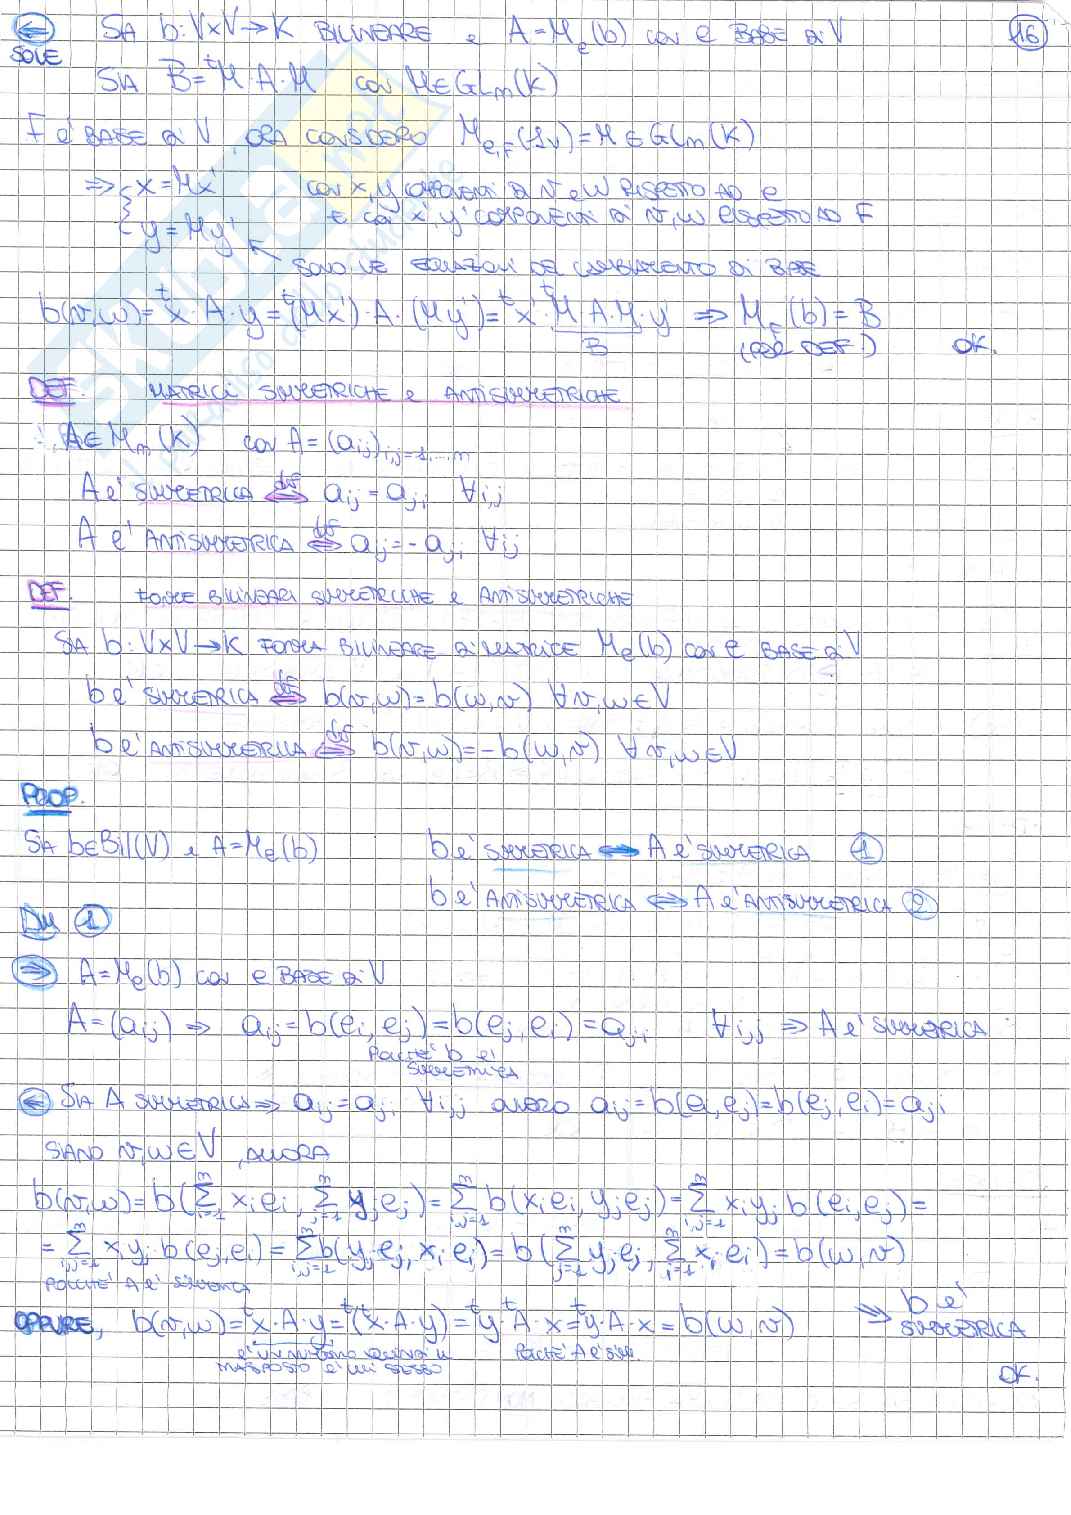 ⇐ SIA b: V×V → K BILINEARE e A = M_e(b) con e BASE di V 16
SOLE
SIA B = ᵗM·A·M con M ∈ GL_m(K)
F è BASE di V, ORA CONSIDERO M_{e,F}(1_V) = M ∈ GL_m(K)
⇒ { x = Mx' con x, y COMPONENTI di v e w RISPETTO AD e
{ y = My' E con x', y' COMPONENTI di v, w RISPETTO AD F
SONO LE EQUAZIONI DEL CAMBIAMENTO DI BASE
b(v,w) = ᵗx·A·y = ᵗ(Mx')·A·(My') = ᵗx'·ᵗM A·M·y' ⇒ M_F(b) = B
B (PER DEF.) OK.
DEF. MATRICI SIMMETRICHE e ANTISIMMETRICHE
A ∈ M_m(K) con A = (a_ij)_{i,j=1,...,m}
A è SIMMETRICA ⇔ def a_ij = a_ji ∀i,j
A è ANTISIMMETRICA ⇔ def a_ij = -a_ji ∀i,j
DEF. FORME BILINEARI SIMMETRICHE e ANTISIMMETRICHE
SIA b: V×V → K FORMA BILINEARE di MATRICE M_e(b) con e BASE di V
b è SIMMETRICA ⇔ def b(v,w) = b(w,v) ∀ v,w ∈ V
b è ANTISIMMETRICA ⇔ def b(v,w) = -b(w,v) ∀ v,w ∈ V
PROP.
SIA b ∈ Bil(V) e A = M_e(b) b è SIMMETRICA ⇔ A è SIMMETRICA ①
b è ANTISIMMETRICA ⇔ A è ANTISIMMETRICA ②
DIM ①
⇒ A = M_e(b) con e BASE di V
A = (a_ij) ⇒ a_ij = b(e_i, e_j) = b(e_j, e_i) = a_ji ∀i,j ⇒ A è SIMMETRICA
POICHÉ b è
SIMMETRICA
⇐ SIA A SIMMETRICA ⇒ a_ij = a_ji ∀i,j OVVERO a_ij = b(e_i, e_j) = b(e_j, e_i) = a_ji
SIANO v, w ∈ V, ALLORA
b(v,w) = b(∑_{i=1}^m x_i e_i, ∑_{j=1}^m y_j e_j) = ∑_{i,j=1}^m b(x_i e_i, y_j e_j) = ∑_{i,j=1}^m x_i y_j b(e_i, e_j) =
= ∑_{i,j=1}^m x_i y_j b(e_j, e_i) = ∑_{i,j=1}^m b(y_j e_j, x_i e_i) = b(∑_{j=1}^m y_j e_j, ∑_{i=1}^m x_i e_i) = b(w,v)
POICHÉ A è SIMMETRICA
OPPURE, b(v,w) = ᵗx·A·y = ᵗ(ᵗx·A·y) = ᵗy·ᵗA·x = ᵗy·A·x = b(w,v) ⇒ b è SIMMETRICA
è un numero quindi il POICHÉ A è SIM.
TRASPOSTO è LUI STESSO
OK.